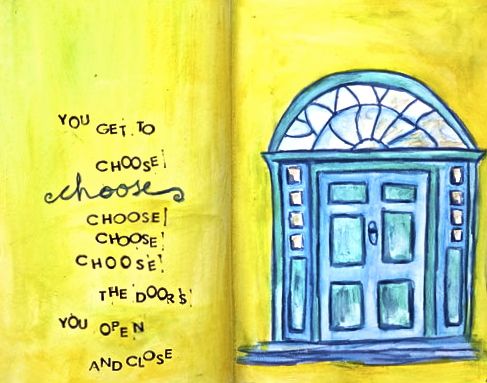 YOU GET TO
CHOOSE!
choose
CHOOSE!
CHOOSE!
CHOOSE!
THE DOORS
YOU OPEN
AND CLOSE